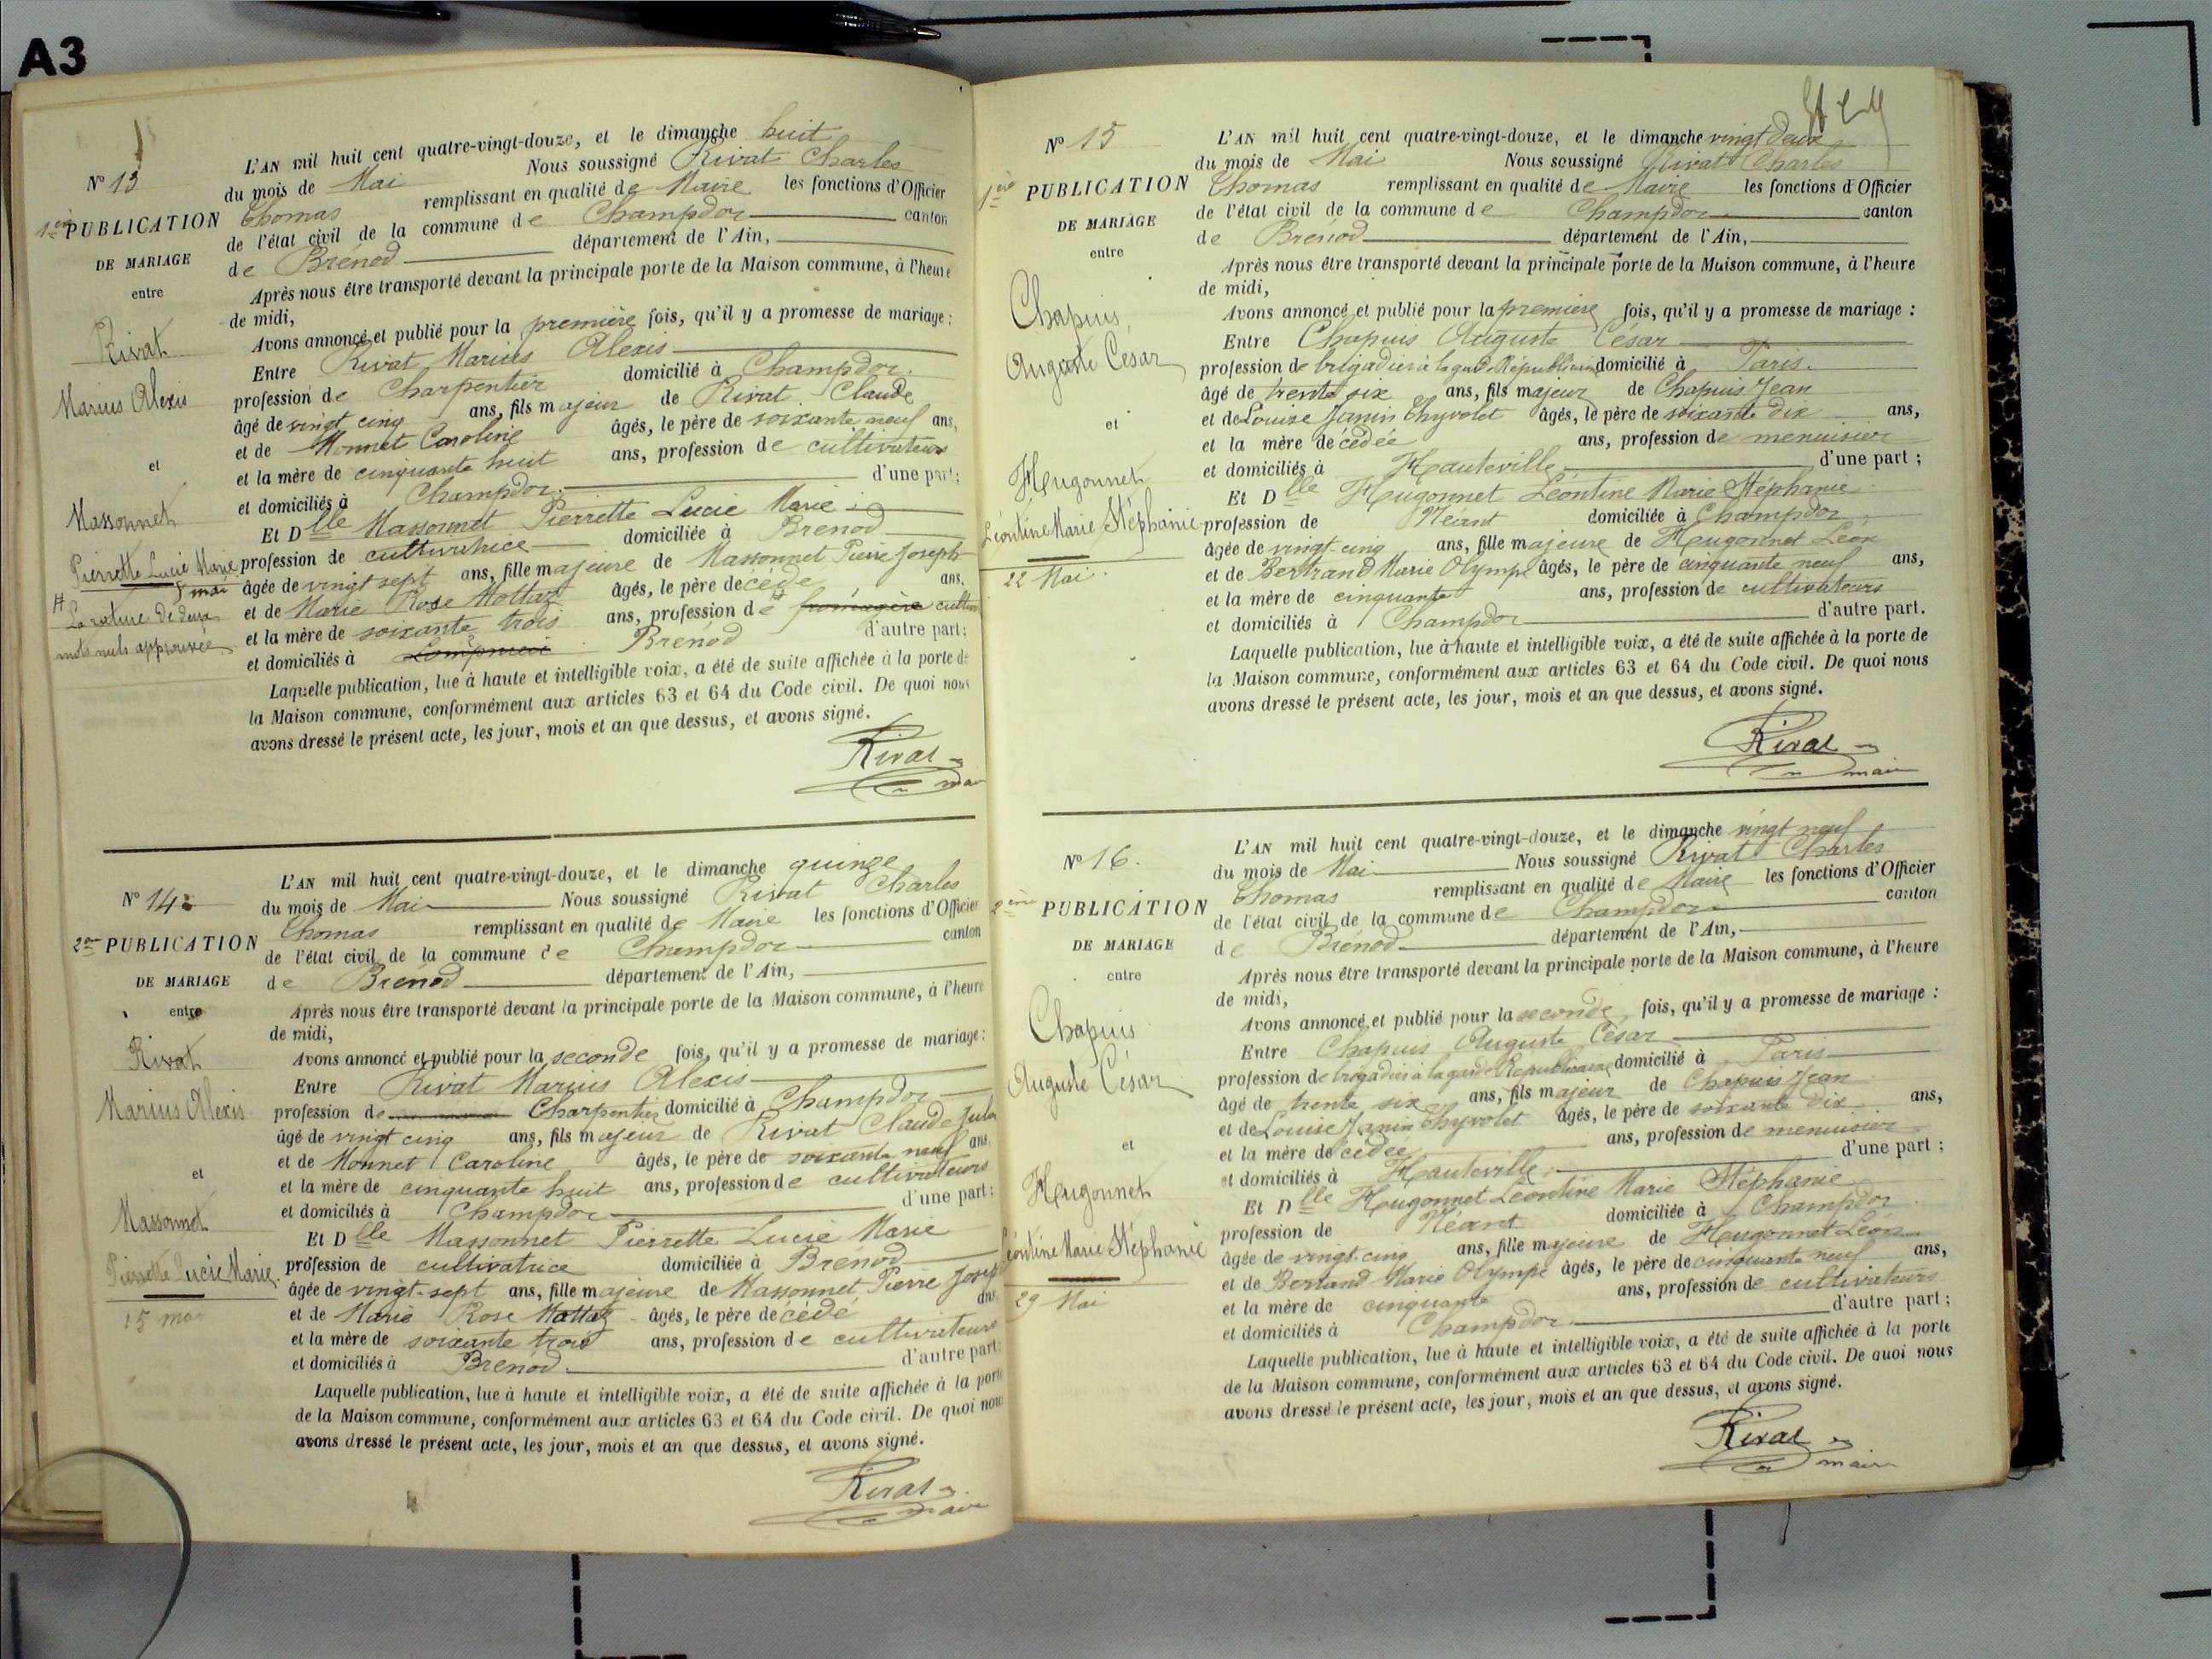 A3
N° 13
1ère PUBLICATION
DE MARIAGE
entre
Rivat
Marius Alexis
et
Massonnet
Pierrette Lucie Marie
8 mai
La rature de deux
mots nuls approuvée
L'AN mil huit cent quatre-vingt-douze, et le dimanche huit
du mois de Mai Nous soussigné Rivat Charles
Thomas remplissant en qualité de Maire les fonctions d'Officier
de l'état civil de la commune de Champdor canton
de Brénod département de l'Ain,
Après nous être transporté devant la principale porte de la Maison commune, à l'heure
de midi,
Avons annoncé et publié pour la première fois, qu'il y a promesse de mariage :
Entre Rivat Marius Alexis
profession de Charpentier domicilié à Champdor
âgé de vingt cinq ans, fils majeur de Rivat Claude
et de Monnet Caroline âgés, le père de soixante neuf ans,
et la mère de cinquante huit ans, profession de cultivateurs
et domiciliés à Champdor d'une part;
Et Dlle Massonnet Pierrette Lucie Marie
profession de cultivatrice domiciliée à Brénod
âgée de vingt sept ans, fille majeure de Massonnet Pierre Joseph
et de Marie Rose Mottaz âgés, le père décédé ans,
et la mère de soixante trois ans, profession de fromagère cultiv
et domiciliés à Brénod d'autre part;
Laquelle publication, lue à haute et intelligible voix, a été de suite affichée à la porte de
la Maison commune, conformément aux articles 63 et 64 du Code civil. De quoi nous
avons dressé le présent acte, les jour, mois et an que dessus, et avons signé.
Rivat
N° 14
2me PUBLICATION
DE MARIAGE
entre
Rivat
Marius Alexis
et
Massonnet
Pierrette Lucie Marie
15 mai
L'AN mil huit cent quatre-vingt-douze, et le dimanche quinze
du mois de Mai Nous soussigné Rivat Charles
Thomas remplissant en qualité de Maire les fonctions d'Officier
de l'état civil de la commune de Champdor canton
de Brénod département de l'Ain,
Après nous être transporté devant la principale porte de la Maison commune, à l'heure
de midi,
Avons annoncé et publié pour la seconde fois, qu'il y a promesse de mariage :
Entre Rivat Marius Alexis
profession de Charpentier domicilié à Champdor
âgé de vingt cinq ans, fils majeur de Rivat Claude
et de Monnet Caroline âgés, le père de soixante neuf ans
et la mère de cinquante huit ans, profession de cultivateurs
et domiciliés à Champdor d'une part;
Et Dlle Massonnet Pierrette Lucie Marie
profession de cultivatrice domiciliée à Brénod
âgée de vingt-sept ans, fille majeure de Massonnet Pierre Joseph
et de Marie Rose Mottaz âgés, le père décédé ans,
et la mère de soixante trois ans, profession de cultivateurs
et domiciliés à Brénod d'autre part.
Laquelle publication, lue à haute et intelligible voix, a été de suite affichée à la porte
de la Maison commune, conformément aux articles 63 et 64 du Code civil. De quoi nous
avons dressé le présent acte, les jour, mois et an que dessus, et avons signé.
Rivat
maire
N° 15
1ère PUBLICATION
DE MARIAGE
entre
Chapuis
Auguste César
et
Hugonnet
Léontine Marie Stéphanie
22 Mai
L'AN mil huit cent quatre-vingt-douze, et le dimanche vingt deux
du mois de Mai Nous soussigné Rivat Charles
Thomas remplissant en qualité de Maire les fonctions d'Officier
de l'état civil de la commune de Champdor canton
de Brénod département de l'Ain,
Après nous être transporté devant la principale porte de la Maison commune, à l'heure
de midi,
Avons annoncé et publié pour la première fois, qu'il y a promesse de mariage :
Entre Chapuis Auguste César
profession de brigadier à la garde Républicaine domicilié à Paris.
âgé de trente six ans, fils majeur de Chapuis Jean
et de Louise Janin Thyvolet âgés, le père de soixante dix ans,
et la mère décédée ans, profession de menuisier
et domiciliés à Hauteville d'une part ;
Et Dlle Hugonnet Léontine Marie Stéphanie
profession de Néant domiciliée à Champdor
âgée de vingt-cinq ans, fille majeure de Hugonnet Léon
et de Bertrand Marie Olympe âgés, le père de cinquante neuf ans,
et la mère de cinquante ans, profession de cultivateurs
et domiciliés à Champdor d'autre part.
Laquelle publication, lue à haute et intelligible voix, a été de suite affichée à la porte de
la Maison commune, conformément aux articles 63 et 64 du Code civil. De quoi nous
avons dressé le présent acte, les jour, mois et an que dessus, et avons signé.
Rivat
maire
N° 16.
2ème PUBLICATION
DE MARIAGE
entre
Chapuis
Auguste César
et
Hugonnet
Léontine Marie Stéphanie
29 Mai
L'AN mil huit cent quatre-vingt-douze, et le dimanche vingt neuf
du mois de Mai Nous soussigné Rivat Charles
Thomas remplissant en qualité de Maire les fonctions d'Officier
de l'état civil de la commune de Champdor canton
de Brénod département de l'Ain,
Après nous être transporté devant la principale porte de la Maison commune, à l'heure
de midi,
Avons annoncé et publié pour la seconde fois, qu'il y a promesse de mariage :
Entre Chapuis Auguste César
profession de brigadier à la garde Républicaine domicilié à Paris
âgé de trente six ans, fils majeur de Chapuis Jean
et de Louise Janin Thyvolet âgés, le père de soixante dix ans,
et la mère décédée ans, profession de menuisier
et domiciliés à Hauteville d'une part ;
Et Dlle Hugonnet Léontine Marie Stéphanie
profession de Néant domiciliée à Champdor
âgée de vingt-cinq ans, fille majeure de Hugonnet Léon
et de Bertrand Marie Olympe âgés, le père de cinquante neuf ans,
et la mère de cinquante ans, profession de cultivateurs
et domiciliés à Champdor d'autre part ;
Laquelle publication, lue à haute et intelligible voix, a été de suite affichée à la porte
de la Maison commune, conformément aux articles 63 et 64 du Code civil. De quoi nous
avons dressé le présent acte, les jour, mois et an que dessus, et avons signé.
Rivat
maire